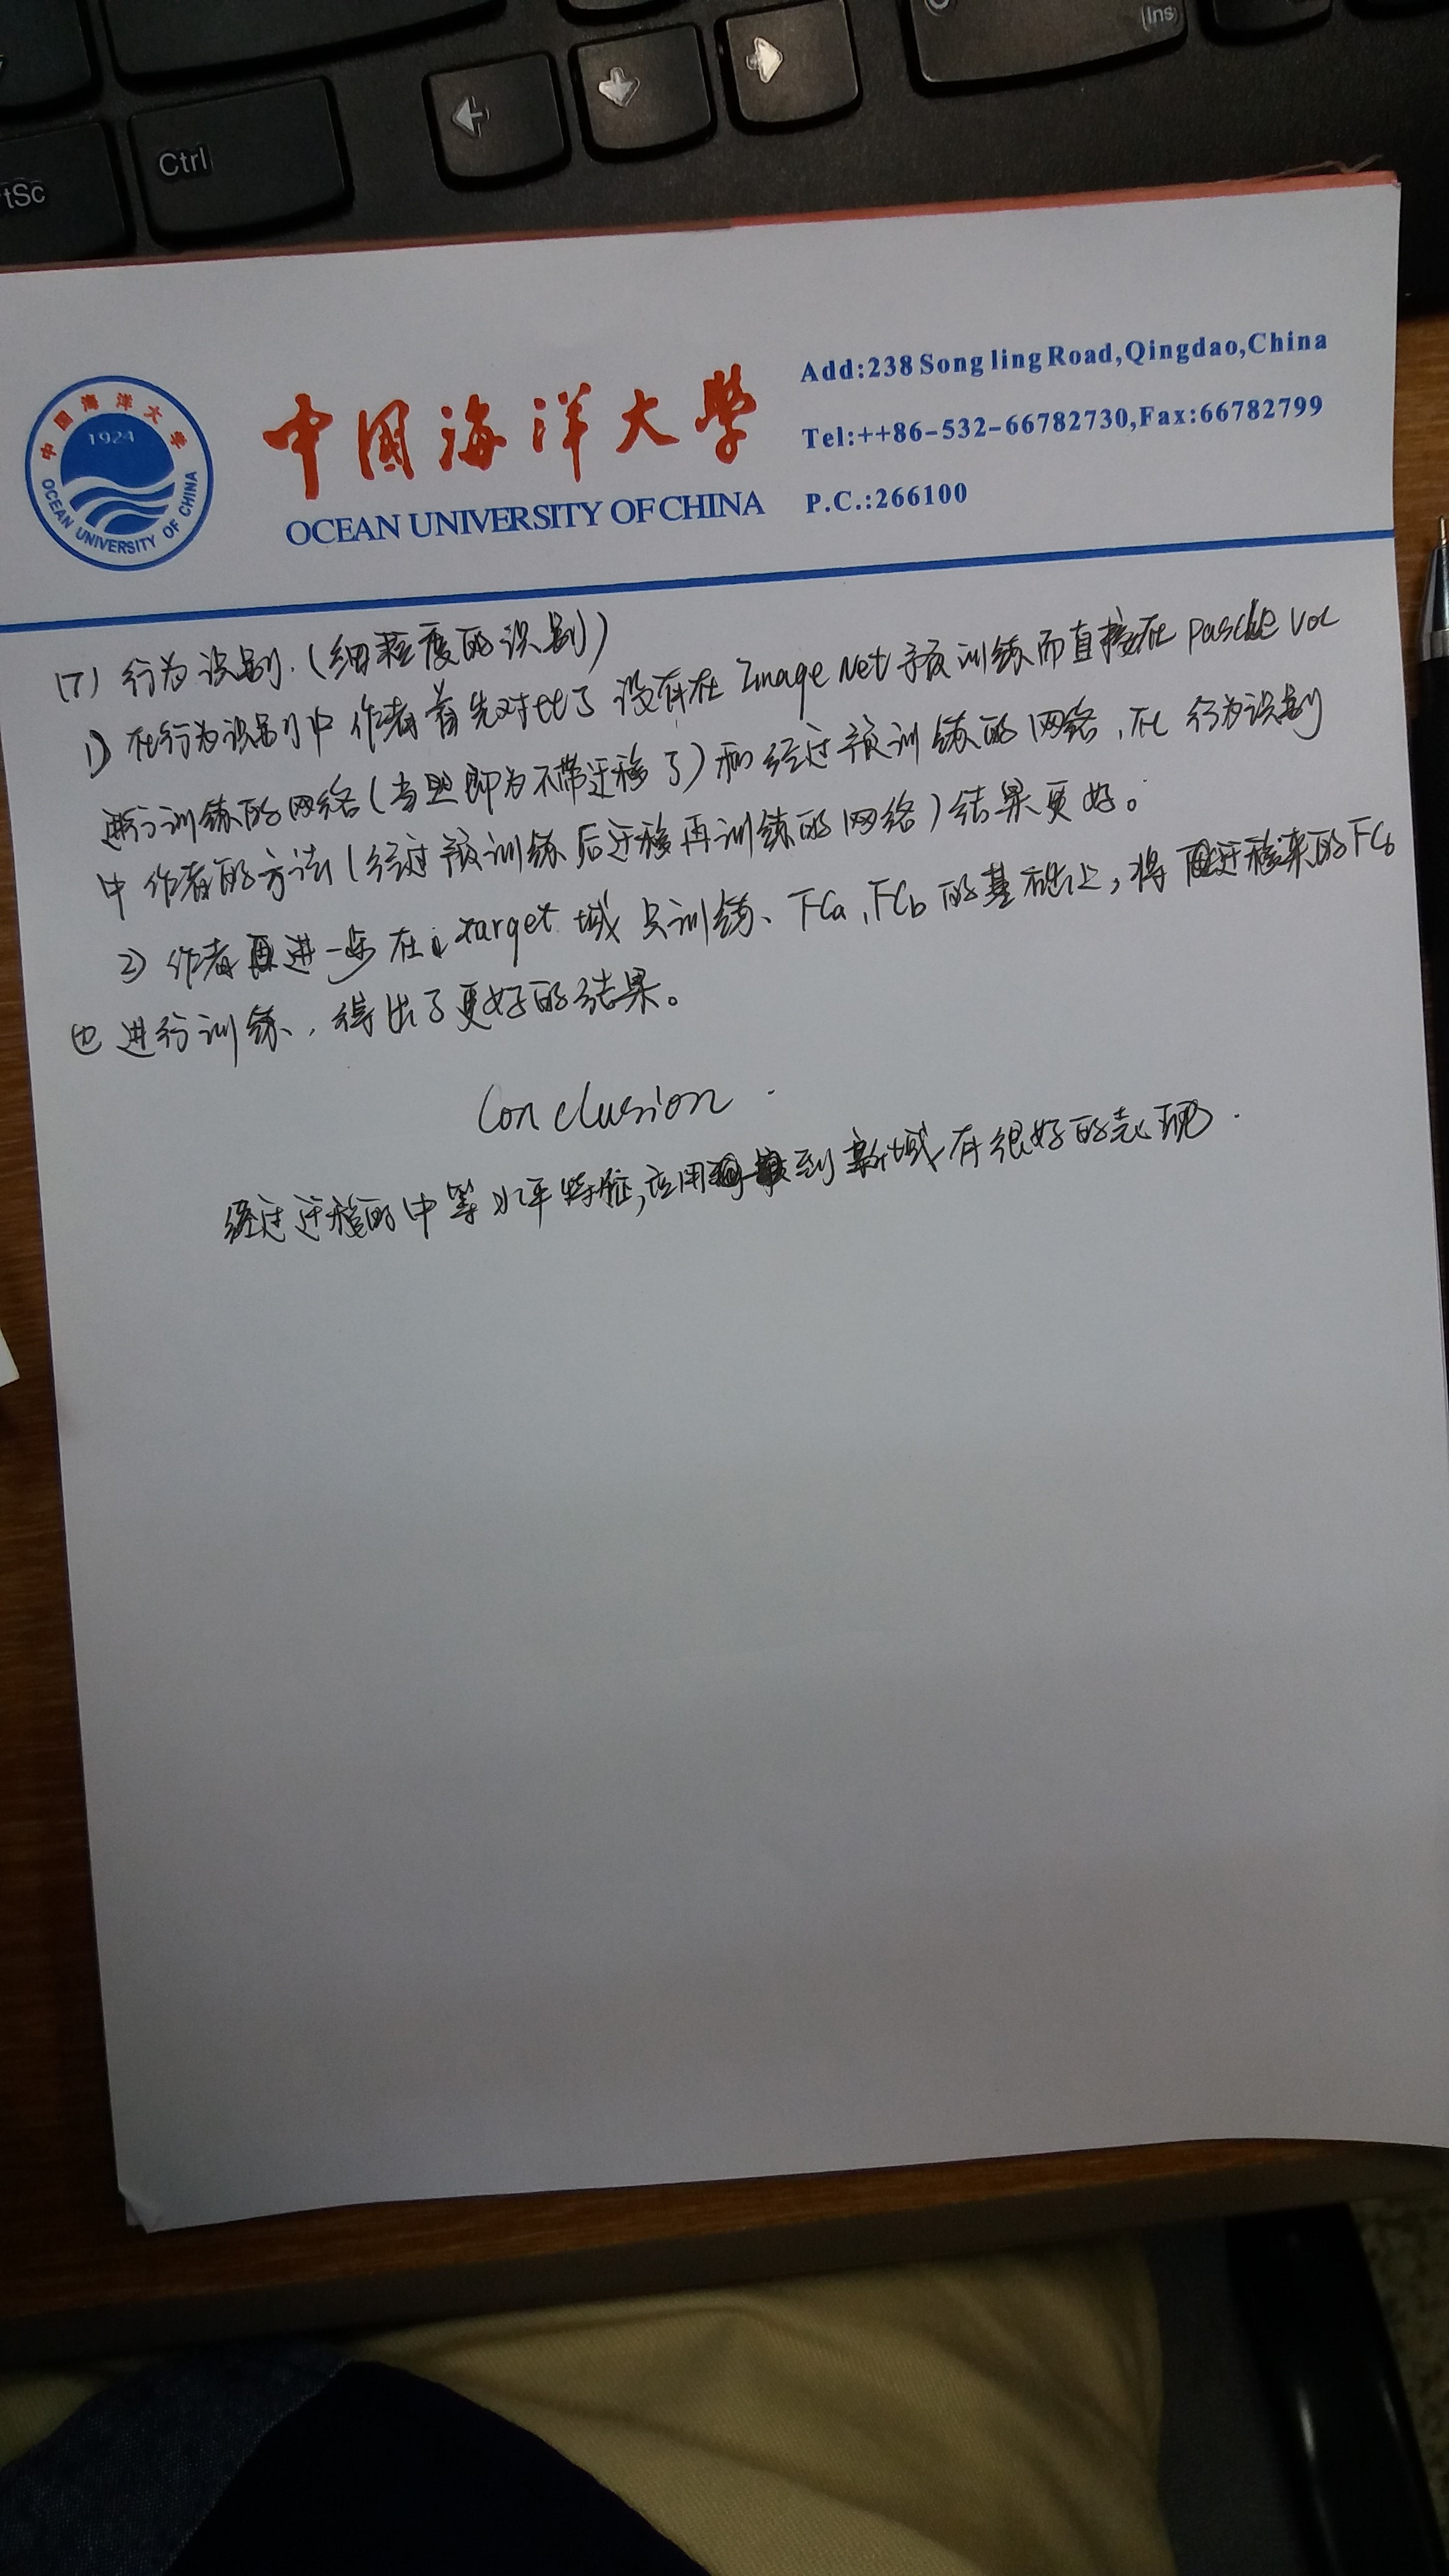 Ins
Ctrl
tSc
中国海洋大学
1924
OCEAN UNIVERSITY OF CHINA
中國海洋大學
OCEAN UNIVERSITY OF CHINA
Add:238 Song ling Road,Qingdao,China
Tel:++86-532-66782730,Fax:66782799
P.C.:266100
(7) 行为识别.(细粒度的识别)
1) 在行为识别中 作者首先对比了 没有在 Image Net 预训练而直接在 Pascle VOC
进行训练的网络(当然即为不带迁移了)和经过预训练的网络,在 行为识别
中 作者的方法(经过预训练后迁移再训练的网络)结果更好。
2) 作者再进一步在 target 域 只训练、FCa,FCb的基础上,将 迁移来的FC6
也进行训练,得出了更好的结果。
Conclusion.
经过迁移的中等水平特征,应用到新域有很好的表现.